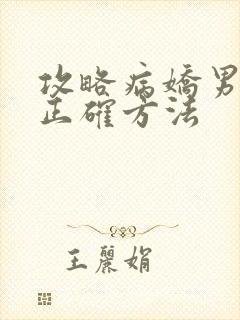 攻略病嬌男
正確方法
王麗娟